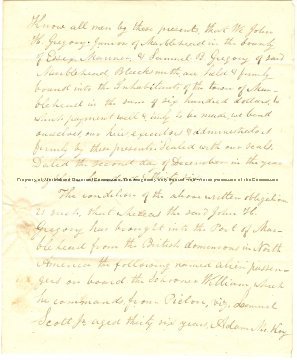 Know all men by these presents, that We John
H. Gregory Junior of Marblehead in the County
of Essex Mariner, & Samuel B Gregory of said
Marblehead Blacksmith, are held & firmly
bound unto the Inhabitants of the town of Mar
blehead in the sum of six hundred dollars, to
which payment well & truly to be made, we bind
ourselves, our heirs, executors & administrators
firmly by these presents. Sealed with our seals.
Dated the second day of December in the year
The condition of the above written obligation
is such, that whereas the said John H.
Gregory has brought into the Port of Mar
blehead from the British dominions in North
America the following named alien passen
gers on board the Schooner William, which
he commands, from Pictou, viz, Samuel
Scott Jr aged thirty six years, Adam McKey